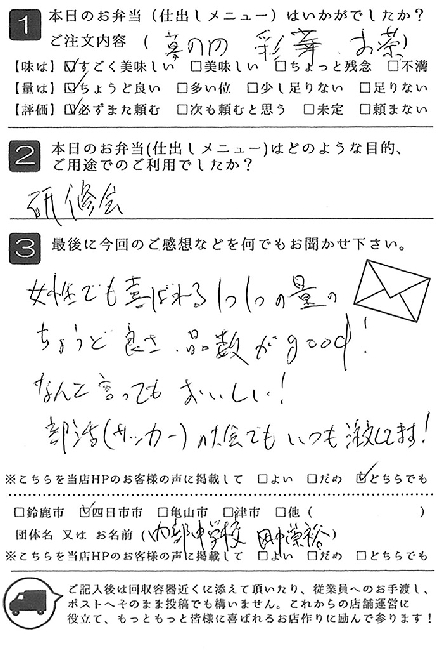 1 本日のお弁当（仕出しメニュー）はいかがでしたか？
ご注文内容（ 彩華 お茶 ）
【味は】☑すごく美味しい □美味しい □ちょっと残念 □不満
【量は】☑ちょうど良い □多い位 □少し足りない □足りない
【評価】☑必ずまた頼む □次も頼むと思う □未定 □頼まない
2 本日のお弁当(仕出しメニュー)はどのような目的、
ご用途でのご利用でしたか？
研修会
3 最後に今回のご感想などを何でもお聞かせ下さい。
女性でも喜ばれる1つ1つの量の
ちょうど良さ、品数がgood!
なんと言ってもおいしい!
部活(サッカー)の大会でもいつも注文してます!
※こちらを当店HPのお客様の声に掲載して □よい □だめ ☑どちらでも
□鈴鹿市 ☑四日市市 □亀山市 □津市 □他（ ）
団体名 又は お名前（内部中学校 田中 ）
※こちらを当店HPのお客様の声に掲載して □よい □だめ □どちらでも
ご記入後は回収容器近くに添えて頂いたり、従業員へのお手渡し、
ポストへそのまま投稿でも構いません。これからの店舗運営に
役立て、もっともっと皆様に喜ばれるお店作りに励んで参ります！